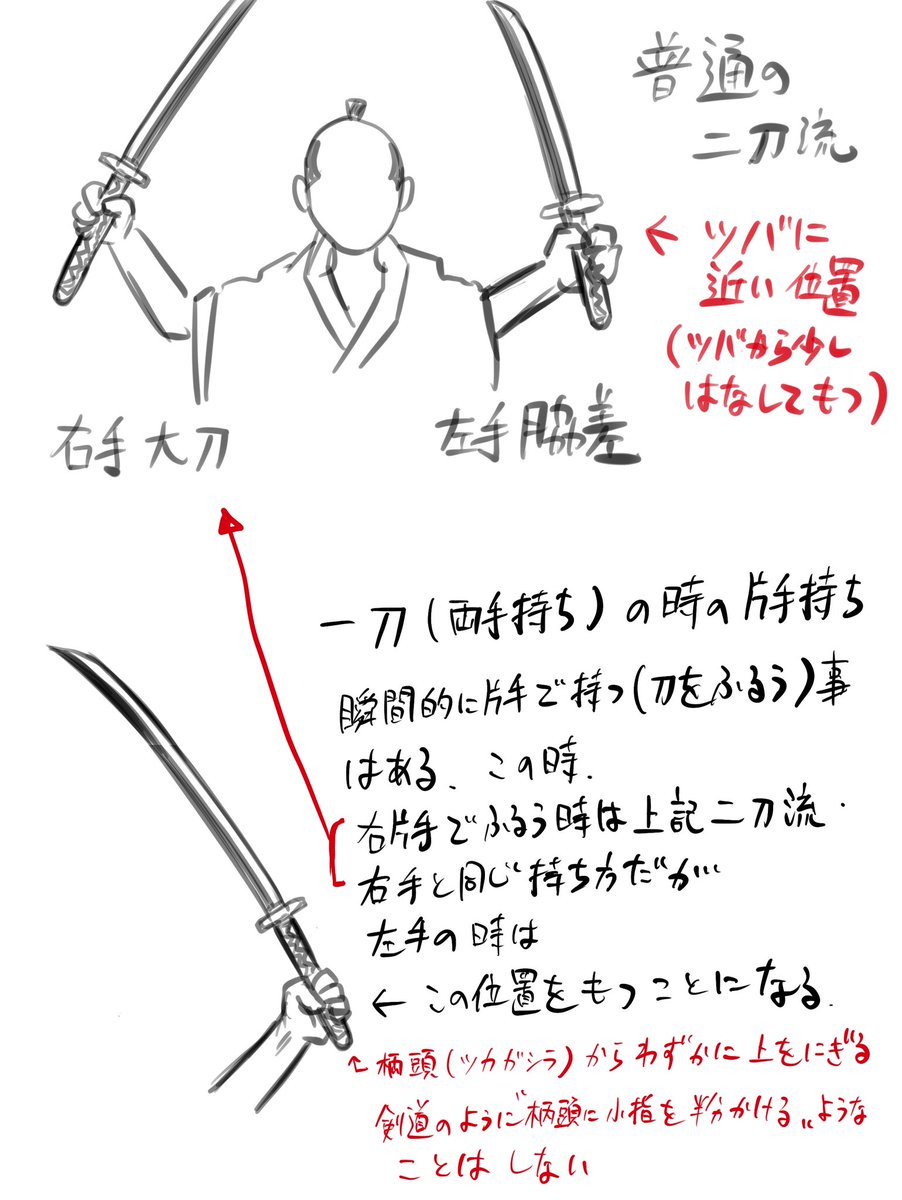 普通の
二刀流
← ツバに
近い位置
(ツバから少し
はなしてもつ)
右手大刀
左手脇差
一刀(両手持ち)の時の片手持ち
瞬間的に片手で持つ(刀をふるう)事
はある、この時、
右片手でふるう時は上記二刀流・
右手と同じ持ち方だが…
左手の時は
← この位置をもつことになる、
← 柄頭(ツカガシラ)からわずかに上をにぎる
剣道のように“柄頭に小指を半分かける”ような
ことはしない